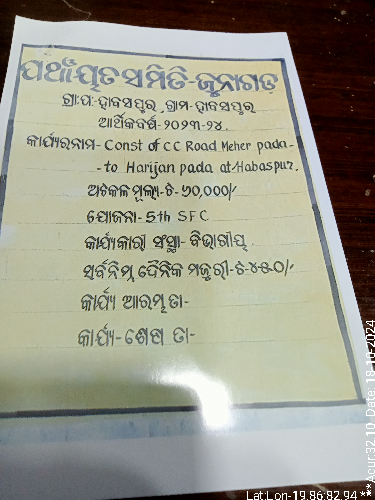 ପଞ୍ଚାୟତସମିତି-ଜୁନାଗଡ଼
ଗ୍ରା:ପ:-ହାବସପୁର, ଗ୍ରାମ-ହାବସପୁର
ଆର୍ଥିକବର୍ଷ-୨୦୨୩-୨୪.
କାର୍ଯ୍ୟରନାମ- Const of CC Road Meher pada-
-to Harijan pada at-Habaspur.
ଅଟକଳ ମୂଲ୍ୟ-ଟ-୬୦,୦୦୦/-
ଯୋଜନା-5th SFC
କାର୍ଯ୍ୟକାରୀ ସଂସ୍ଥା- ବିଭାଗୀୟ
ସର୍ବନିମ୍ନ ଦୈନିକ ମଜୁରୀ-ଟ-୪୫୦/-
କାର୍ଯ୍ୟ ଆରମ୍ଭ ତା-
କାର୍ଯ୍ୟ-ଶେଷ ତା-
Lat:Lon-19.86:82.94 ***
Acur:32.10, Date: 18-10-2024